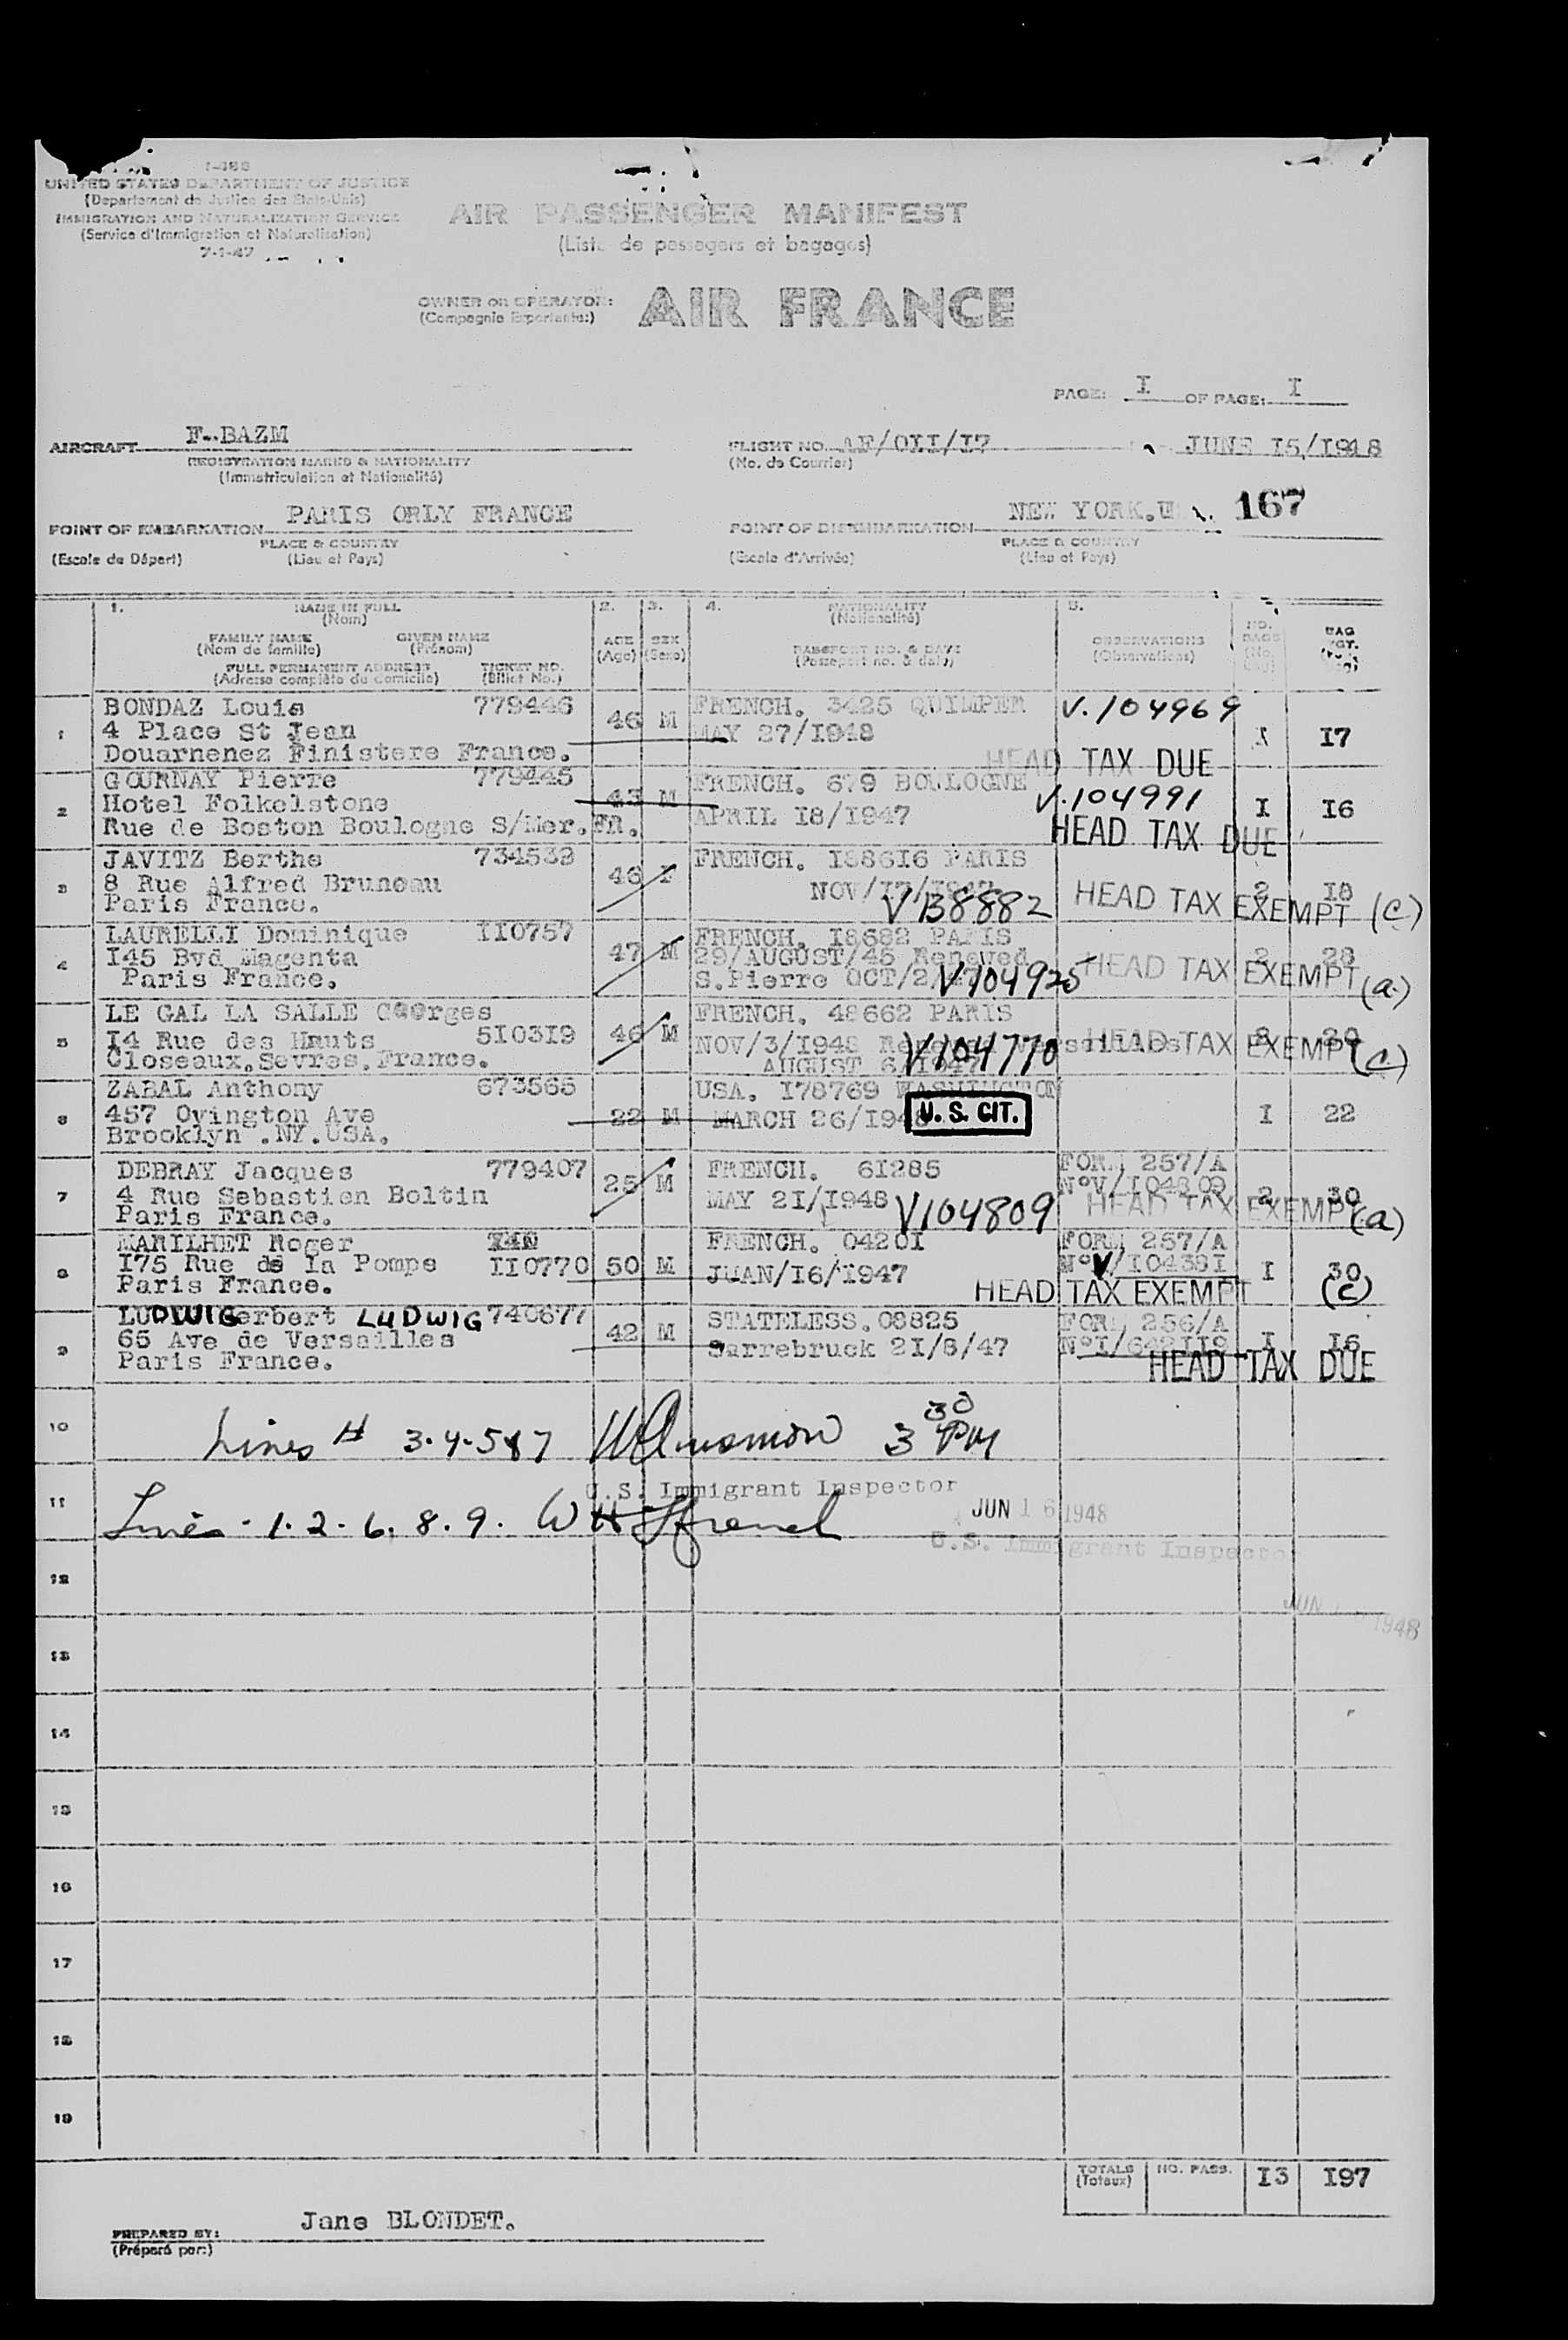 I-466
UNITED STATES DEPARTMENT OF JUSTICE
(Departement de Justice des Etats-Unis)
IMMIGRATION AND NATURALIZATION SERVICE
(Service d'Immigration et Naturalisation)
7-1-47
AIR PASSENGER MANIFEST
(Liste de passagers et bagages)
OWNER on OPERATOR:
(Compagnie Exportante:)
AIR FRANCE
PAGE: I OF PAGE: I
AIRCRAFT F-BAZM
REGISTRATION MARKS & NATIONALITY
(Immatriculation et Nationalité)
FLIGHT NO. AF/OII/I7 JUNE I5/I948
(No. de Courrier)
POINT OF EMBARKATION PARIS ORLY FRANCE
PLACE & COUNTRY
(Escale de Départ) (Lieu et Pays)
POINT OF DISEMBARKATION NEW YORK.U 167
PLACE & COUNTRY
(Escale d'Arrivée) (Lieu et Pays)
1. NAME IN FULL
(Nom)
FAMILY NAME GIVEN NAME
(Nom de famille) (Prénom)
FULL PERMANENT ADDRESS TICKET NO.
(Adresse complète du domicile) (Billet No.)
2. AGE
(Age)
3. SEX
(Sexe)
4. NATIONALITY
(Nationalité)
PASSPORT NO. & DATE
(Passeport no. & date)
5. OBSERVATIONS
(Observations)
NO. BAGS
BAG WGT.
1 BONDAZ Louis 779446 46 M FRENCH. 3425 QUIMPER V.104969
4 Place St Jean MAY 27/I948 I I7
Douarnenez Finistere France. HEAD TAX DUE
2 GOURNAY Pierre 779445 43 M FRENCH. 679 BOULOGNE V.104991
Hotel Folkelstone APRIL I8/I947 I I6
Rue de Boston Boulogne S/Mer.FR. HEAD TAX DUE
3 JAVITZ Berthe 734532 46 F FRENCH. I386I6 PARIS
8 Rue Alfred Bruneau NOV/I7/I947 V138882 HEAD TAX EXEMPT (c) 2 I8
Paris France.
4 LAURELLI Dominique II0757 47 M FRENCH. I8682 PARIS
I45 Bvd Magenta 29/AUGUST/45 Renewed 2 28
Paris France. S.Pierre OCT/2 V104925 HEAD TAX EXEMPT (a.)
5 LE GAL LA SALLE Georges 46 M FRENCH. 48662 PARIS
I4 Rue des Hauts 5I03I9 NOV/3/I948 V104770 HEAD TAX EXEMPT (c)
Closeaux.Sevres.France. AUGUST 6/I947
6 ZABAL Anthony 673565 22 M USA. I78769 WASHINGTON
457 Ovington Ave MARCH 26/I948 U. S. CIT. I 22
Brooklyn .NY.USA.
7 DEBRAY Jacques 779407 25 M FRENCH. 6I285 FORM 257/A
4 Rue Sebastien Boltin MAY 2I/I948 V104809 N°V/I04809 2 30
Paris France. HEAD TAX EXEMPT (a)
8 MARILHET Roger 50 M FRENCH. 0420I FORM 257/A
I75 Rue de la Pompe II0770 JUAN/I6/I947 N°V/I0438I I 30
Paris France. HEAD TAX EXEMPT (c)
9 LUDWIG erbert LUDWIG 740677 42 M STATELESS.08825 FORM 256/A
65 Ave de Versailles Sarrebruck 2I/8/47 N°I/642II9 I I6
Paris France. HEAD TAX DUE
10 Lines # 3-4-5&7 3 30 PM
11 U.S. Immigrant Inspector JUN 16 1948
Lines - 1. 2 - 6. 8. 9. W H
U.S. Immigrant Inspector
12
JUN 1948
13
14
15
16
17
18
19
TOTALS
(Totaux)
NO. PASS. I3 I97
PREPARED BY: Jane BLONDET.
(Préparé par:)